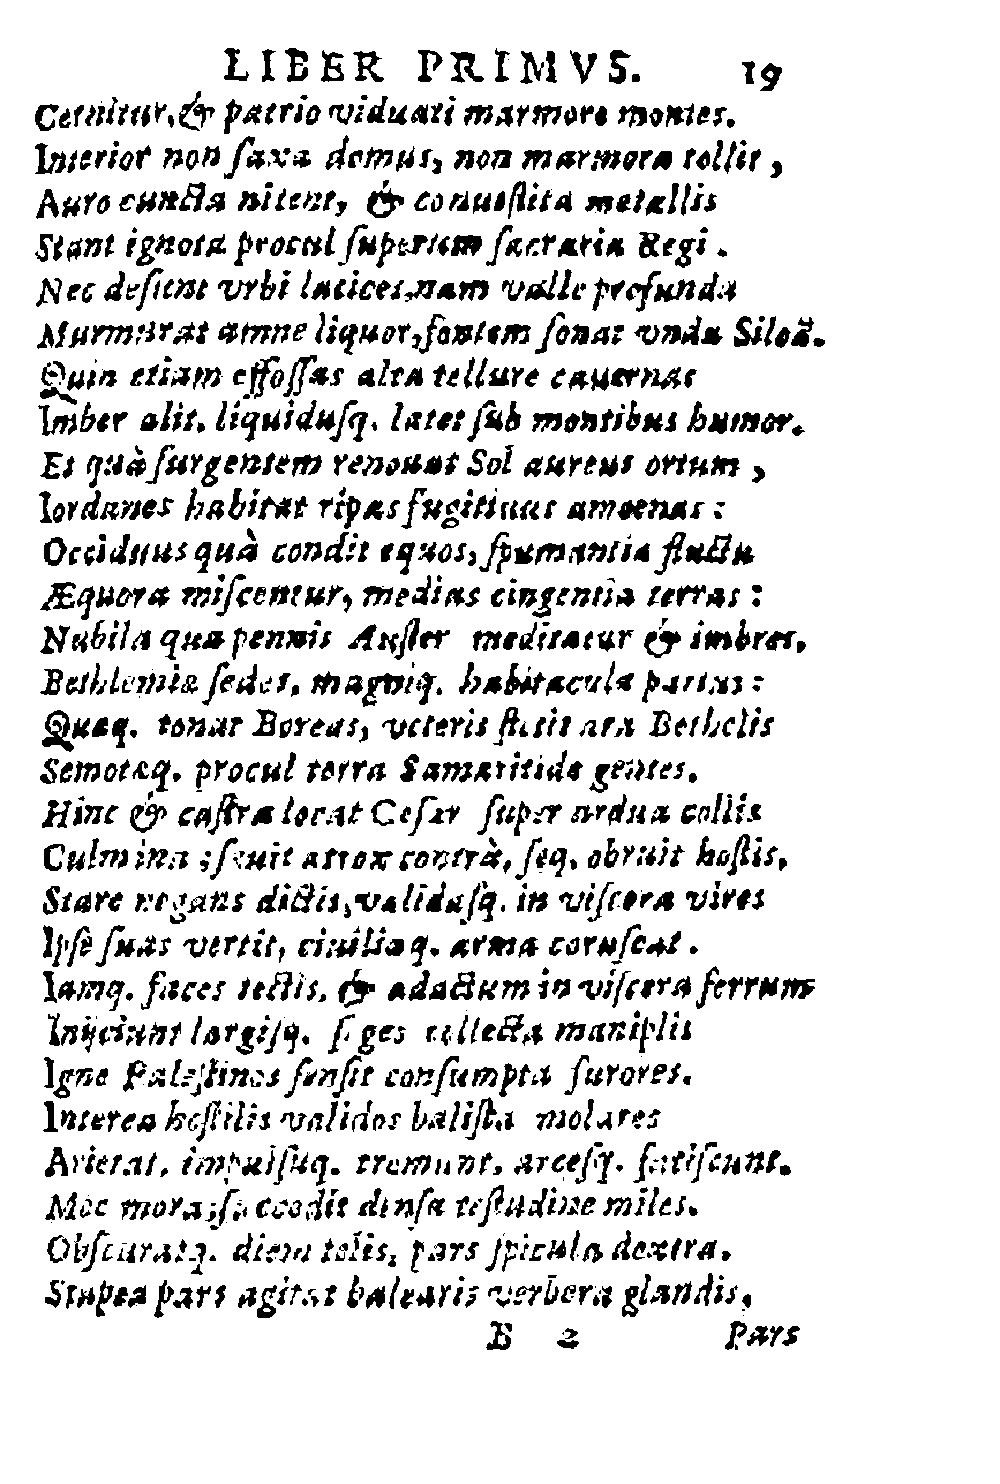 LIBER PRIMVS. 19
Cernitur, & patrio viduati marmore montes.
Interior non ſaxa domus, non marmora tollit,
Auro cuncta nitent, & conueſtita metallis
Stant ignota procul ſuperûm ſacraria Regi.
Nec deſunt vrbi latices, nam valle profunda
Murmurat amne liquor, fontem ſonat vnda Siloä.
Quin etiam effoſſas alta tellure cauernas
Imber alit. liquiduſq. latet ſub montibus humor.
Et quà ſurgentem renouat Sol aureus ortum,
Iordanes habitat ripas fugitiuus amoenas:
Occiduus quà condit equos, ſpumantia fluctu
Æquora miſcentur, medias cingentia terras:
Nubila qua pennis Auſter meditatur & imbres,
Bethlemiæ ſedes, magniq. habitacula partus:
Quaq. tonat Boreas, veteris ſtetit ara Bethelis
Semotæq. procul terra Samaritide gentes.
Hinc & caſtra locat Ceſar ſuper ardua collis
Culmina; ſeuit atrox contrà, ſeq. obruit hoſtis,
Stare negans dictis, validaſq. in viſcera vires
Ipſe ſuas vertit, ciuiliaq. arma coruſcat.
Iamq. faces tectis, & adactum in viſcera ferrum
Inijciunt largiſq. ſeges collecta maniplis
Igne Paleſtinos ſenſit conſumpta furores.
Interea hoſtilis validos baliſta molares
Arietat, impulſuq. tremunt, arceſq. fatiſcunt.
Nec mora; ſuccedit denſa teſtudine miles.
Obſcuratq. diem telis, pars ſpicula dextra.
Stupea pars agitat balearis verbera glandis,
B 2 Pars